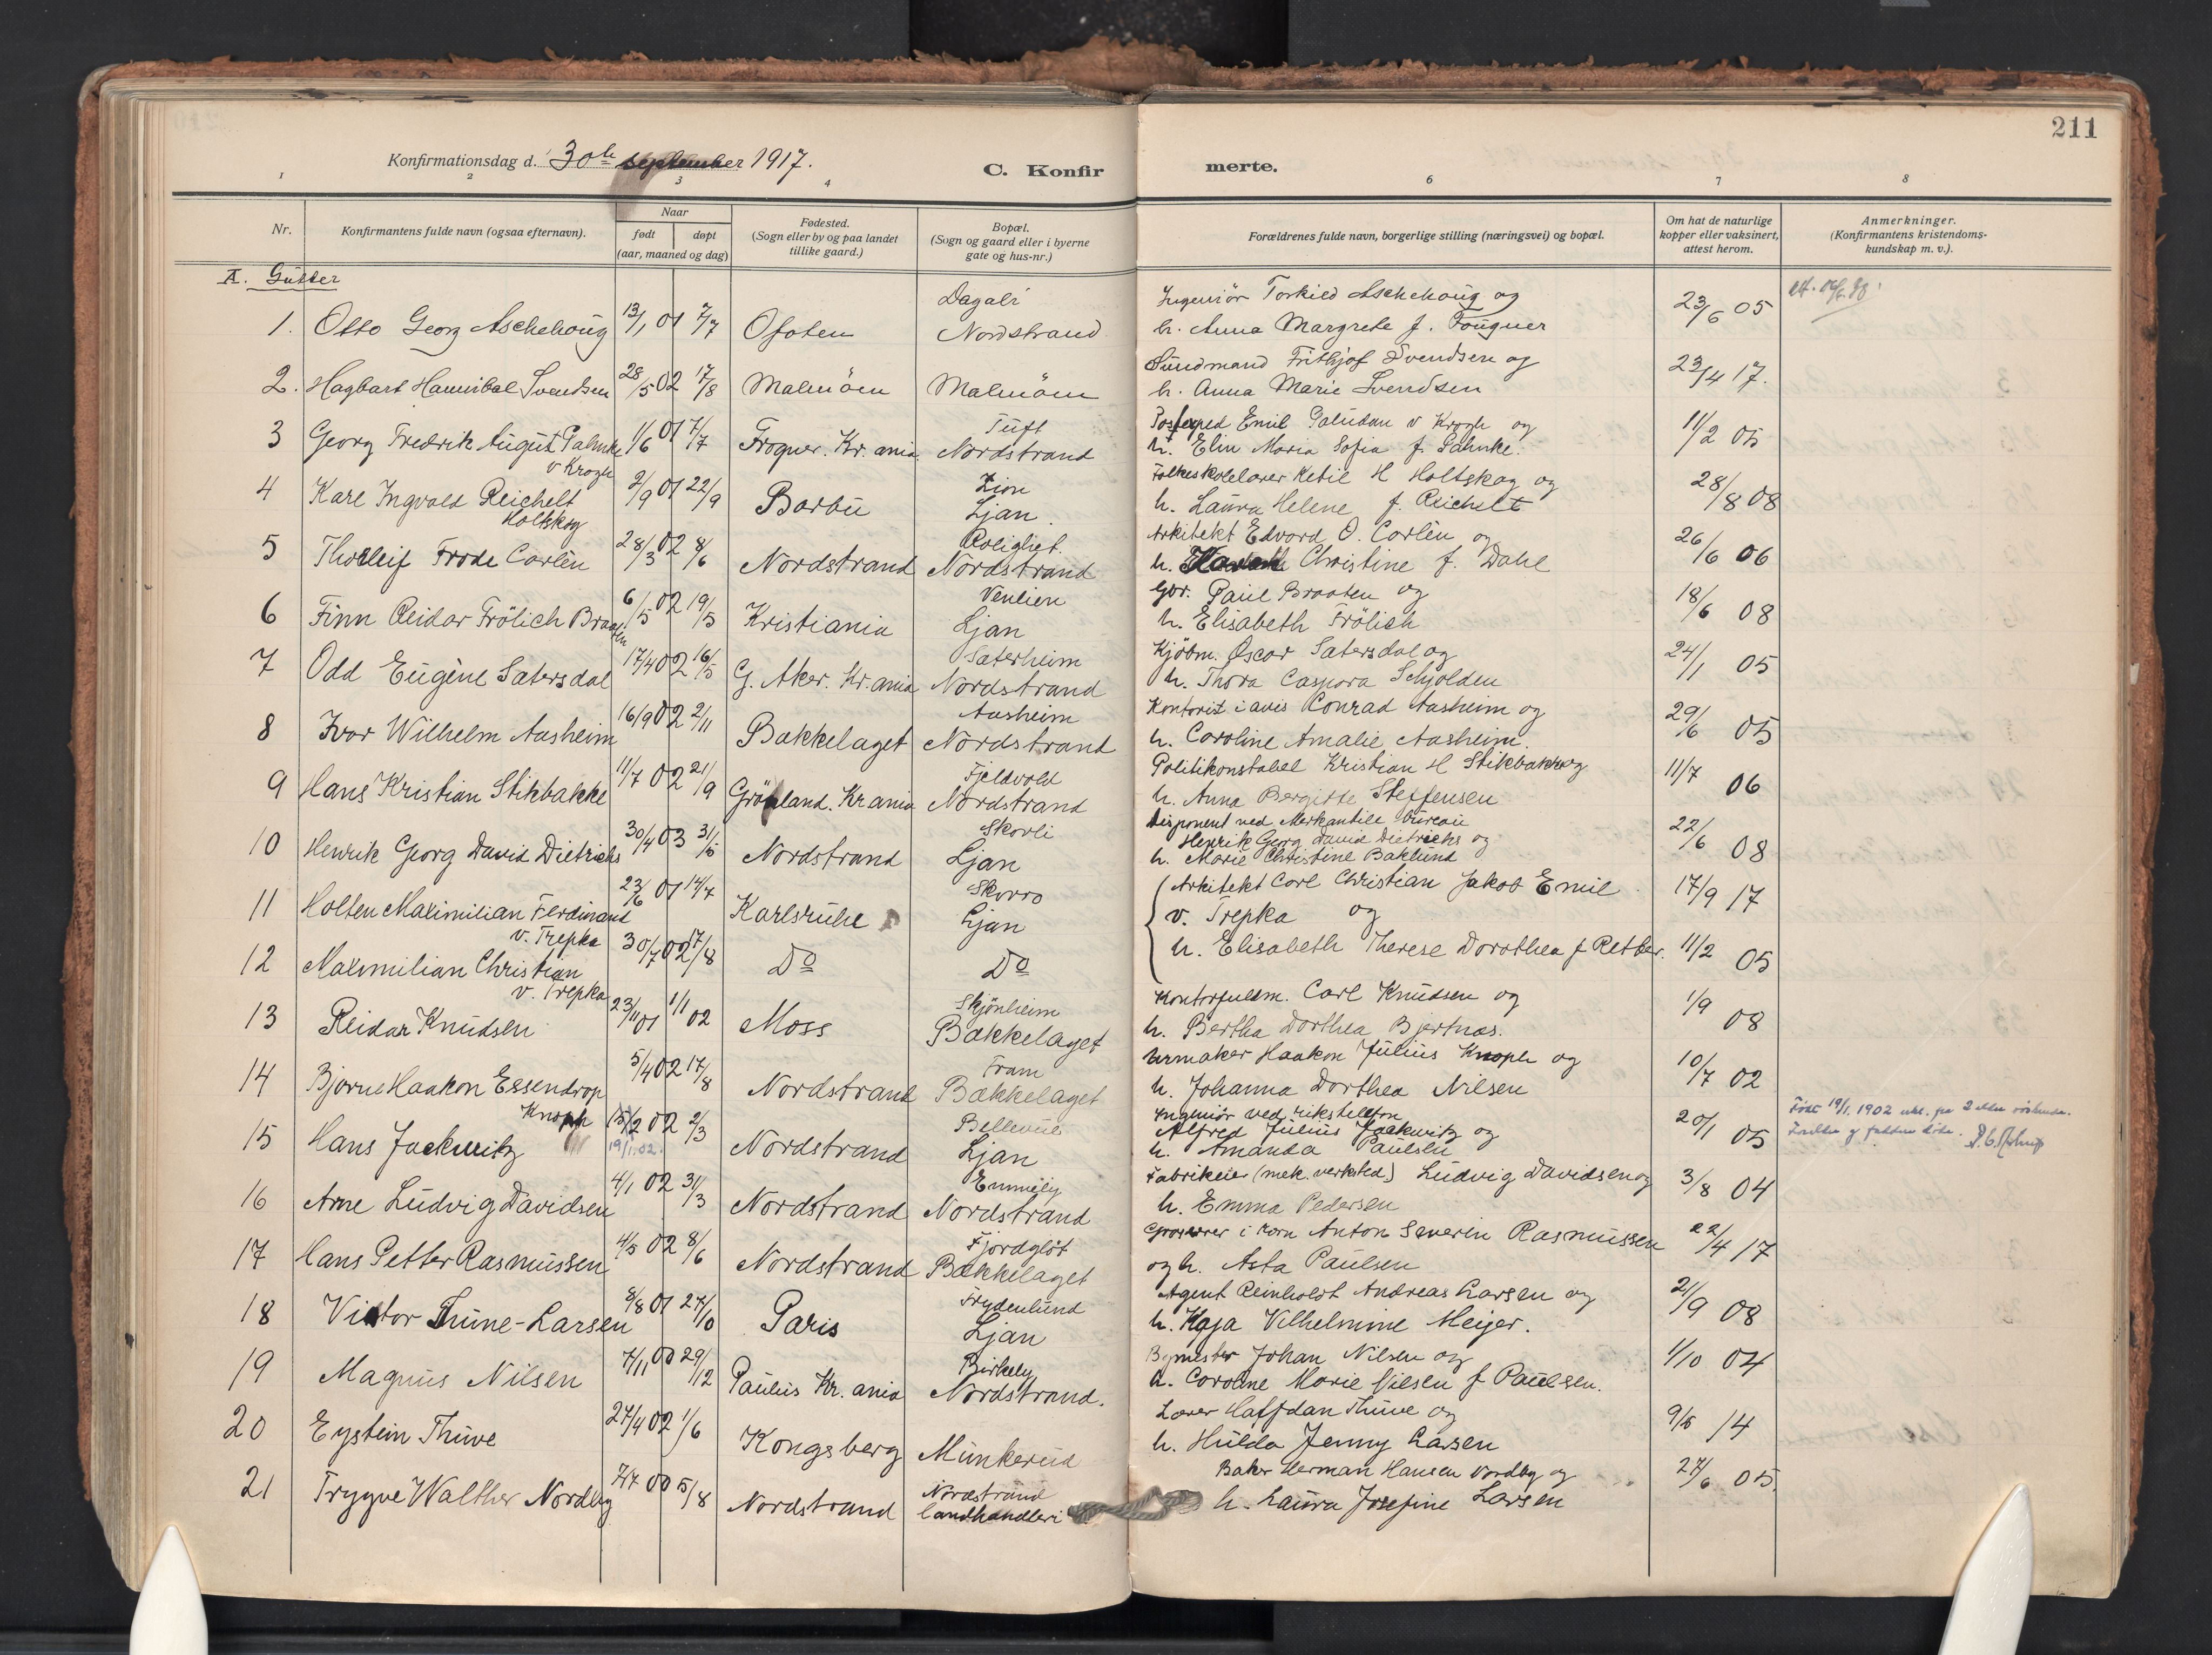 211
Konfirmationsdag d. 30te september 1917.
C. Konfir merte.
1 2 3 4 6 7 8
Nr.
Konfirmantens fulde navn (ogsaa efternavn).
Naar
født døpt
(aar, maaned og dag)
Fødested.
(Sogn eller by og paa landet
tillike gaard.)
Bopæl.
(Sogn og gaard eller i byerne
gate og hus-nr.)
Forældrenes fulde navn, borgerlige stilling (næringsvei) og bopæl.
Om hat de naturlige
kopper eller vaksinert,
attest herom.
Anmerkninger.
(Konfirmantens kristendoms-
kundskap m. v.).
A. Gutter
1. Otto Georg Aschehoug 13/1 01 7/7 Ofoten Dagali Nordstrand
Ingeniör Torkild Aschehoug og
h. Anna Margrete f. Fougner 23/6 05
2. Hagbart Hannibal Svendsen 28/5 02 17/8 Malmöen Malmöen
Sundmand Frithjof Svendsen og
h. Anna Marie Svendsen 23/4 17.
3 Georg Fredrik August Palmke v Krogh 1/6 01 7/7 Frogner. Kr. ania. Tuft Nordstrand
Postexped Emil Galudan v Krogh og
h. Elin Maria Sofia f. Palmke. 11/2 05
4 Karl Ingvald Reichelt Holtskog 2/9 01 22/9 Barbu Zion Ljan.
Folkeskolelærer Ketil H Holtskog og
h. Laura Helene f. Reichelt 28/8 08
5 Thorleif Frode Carlèn 28/3 02 8/6 Nordstrand Rolighet. Nordstrand
Arkitekt Edvard O. Carlèn og
h. Christine f. Dahl 26/6 06
6 Finn Reidar Frölich Braaten 6/5 02 19/5 Kristiania Venlien Ljan
Gbr. Paul Braaten og
h. Elisabeth Frölich 18/6 08
7 Odd Eugène Sætersdal 17/4 02 16/5 G. Aker. Kr. ania Sæterheim Nordstrand
Kjöbm. Oscar Sætersdal og
h. Thora Caspara Schjolden 24/1 05
8 Ivar Wilhelm Aasheim 16/9 02 2/11 Bækkelaget Aasheim Nordstrand
Kontorist i avis Konrad Aasheim og
h. Caroline Amalie Aasheim. 29/6 05
9 Hans Kristian Stikbakke 11/7 02 21/9 Grönland. Kr ania Fjeldvold Nordstrand
Politikonstabel Kristian H Stikbakke og
h. Anna Bergitte Steffensen 11/7 06
10 Henrik Georg David Dietrichs 30/4 03 31/5 Nordstrand Skovli Ljan
Disponent ved Merkantile bureau
Henrik Georg David Dietrichs og
h. Marie Christine Baklund 22/6 08
11 Holten Maximilian Ferdinand v. Trepka 23/6 01 14/7 Karlsruhe Skovro Ljan
Arkitekt Carl Christian Jakob Emil
v. Trepka og 17/9 17
12 Maximilian Christian v. Trepka 30/7 02 17/8 Do Do
h. Elisabeth Therese Dorothea f Retter. 11/2 05
13 Reidar Knudsen 23/11 01 1/1 02 Moss Skjönheim Bækkelaget
Kontorfuldm. Carl Knudsen og
h. Bertha Dorthea Bjertnæs. 1/9 08
14 Bjarne Haakon Essendrop Knoph 5/4 02 17/8 Nordstrand Fram Bækkelaget
Urmaker Haakon Julius Knoph og
h. Johanna Dorthea Nilsen 10/7 02
15 Hans Jackwitz 15/2 02 2/3 19/1.02. Nordstrand Bellevue Ljan
Ingeniör ved rikstelefon
Alfred Julius Jackwitz og
h. Amanda Paulsen 20/1 05
Födt 19/1. 1902
16 Arne Ludvig Davidsen 4/1 02 31/3 Nordstrand Emmely Nordstrand
Fabrikeier (mek. verksted) Ludvig Davidsen og
h. Emma Pedersen 3/8 04
17 Hans Petter Rasmussen 4/5 02 8/6 Nordstrand Fjordgløt Bækkelaget
Grosserer i korn Anton Severin Rasmussen
og h. Asta Paulsen 22/4 17
18 Victor Thune-Larsen 8/8 01 27/10 Paris Frydenlund Ljan
Agent Reinholdt Andreas Larsen og
h. Kaja Vilhelmine Meijer. 21/9 08
19 Magnus Nilsen 7/11 00 29/12 Paulus Kr. ania Birkely Nordstrand.
Bymester Johan Nilsen og
h. Caroline Marie Nilsen f Paulsen. 1/10 04
20 Eystein Thuve 27/4 02 1/6 Kongsberg Munkerud
Lærer Halfdan Thuve og
h. Hulda Jenny Larsen 9/5 14
21 Trygve Walther Nordby 7/7 00 5/8 Nordstrand Nordstrand landhandleri
Baker Herman Hansen Nordby og
h. Laura Josefine Larsen 27/6 05.